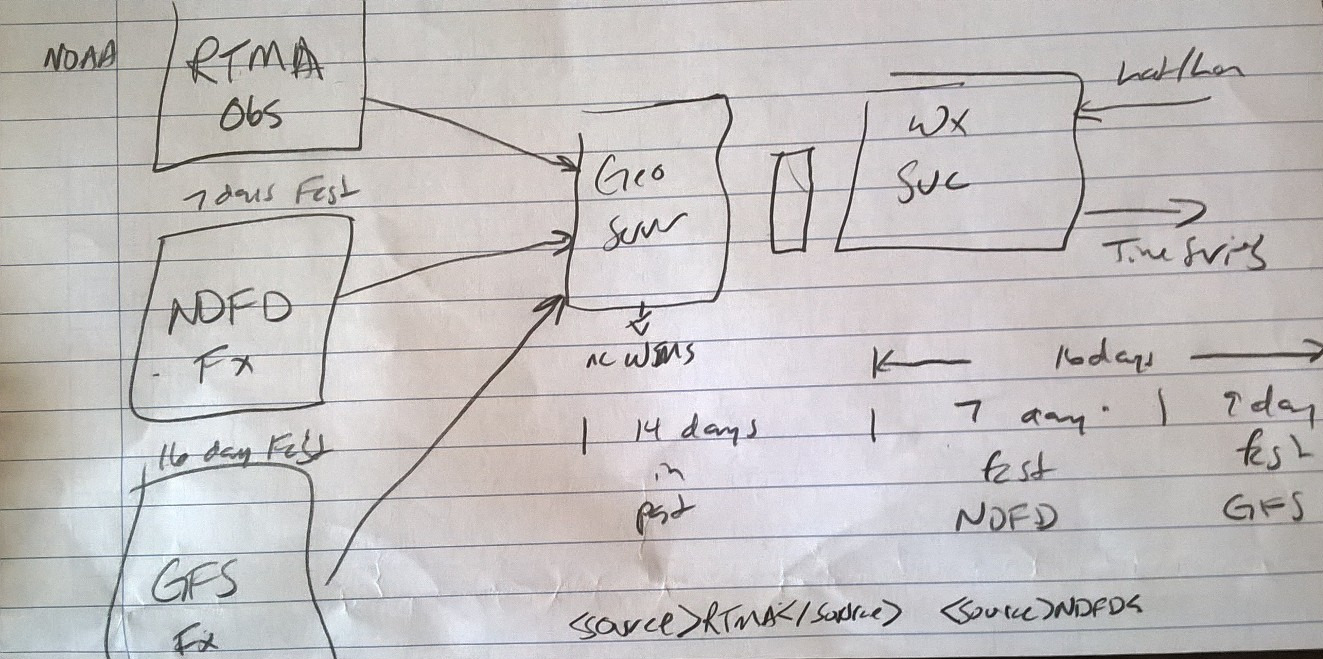 NOAA
RTMA
Obs
7 days Fcst
NDFD
Fx
16 day Fcst
GFS
Fx
Geo
Serv
nc WMS
Wx
Svc
Lat/Lon
Time Series
16 days
14 days
in
past
7 day
fcst
NDFD
9 day
fcst
GFS
<source>RTMA</source> <source>NDFD<